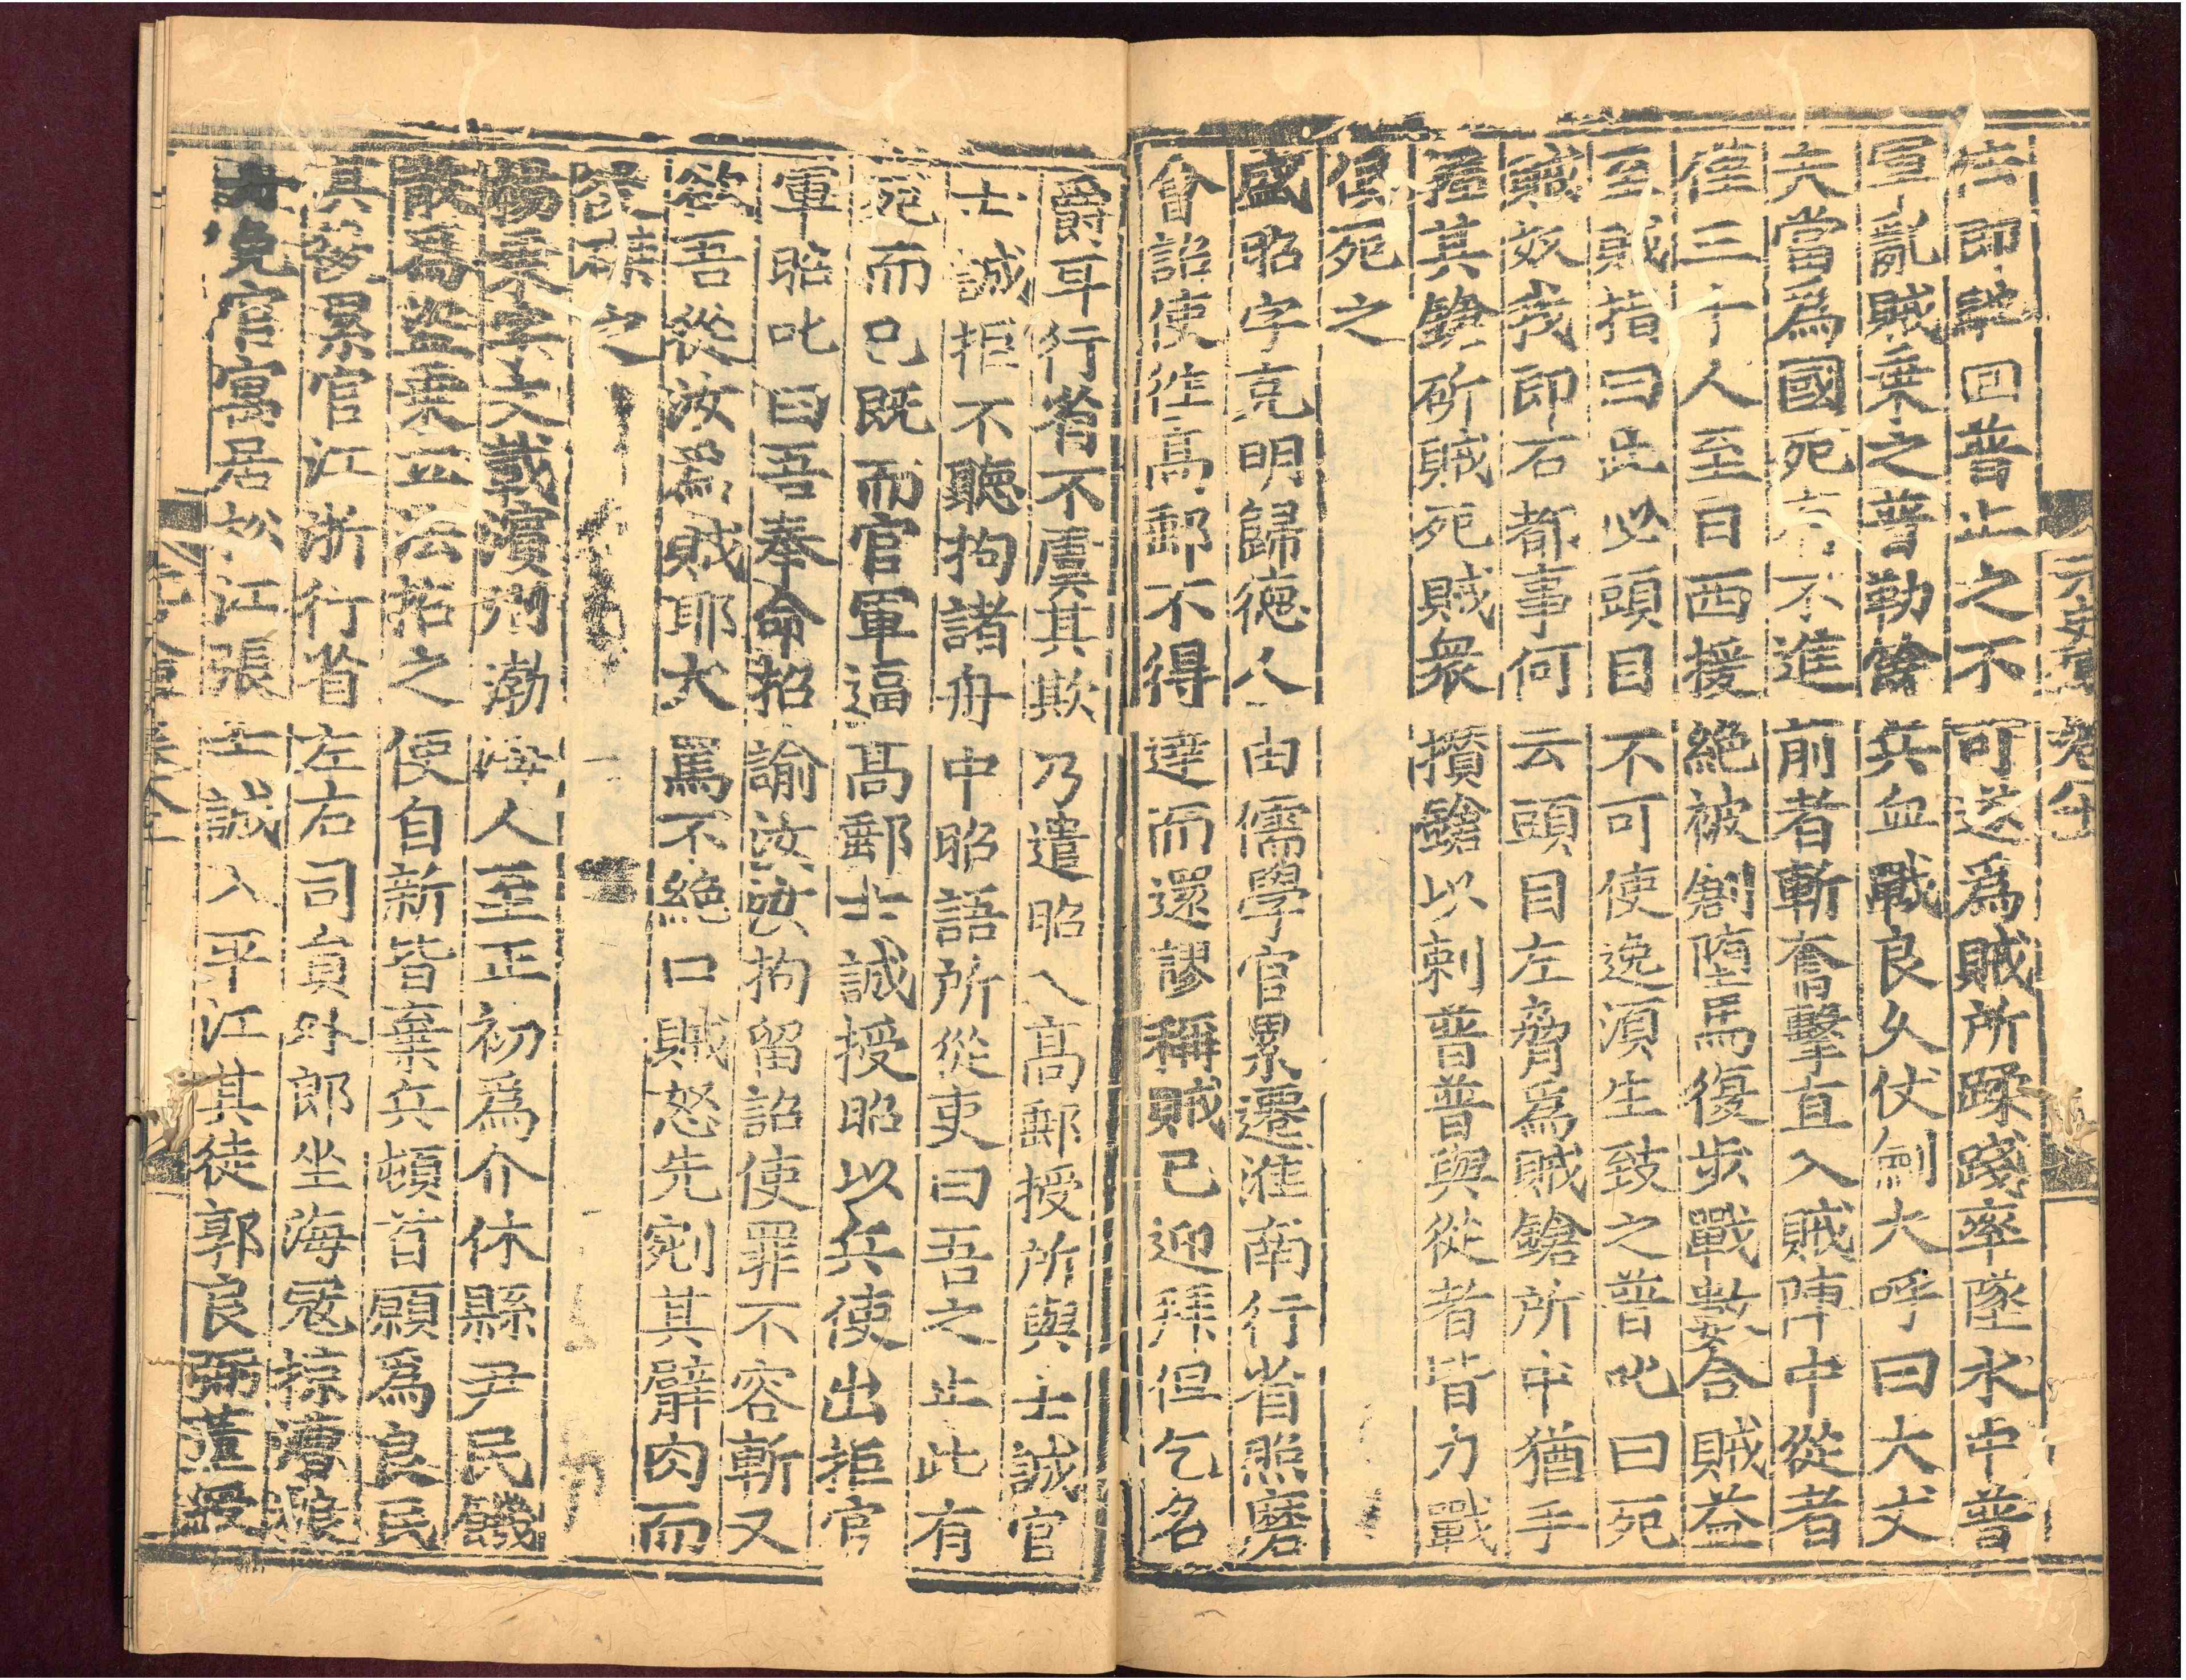 元史傳 卷八十
往即營回普止之不可遂爲賊所蹂踐率墜水中普
軍亂賊乗之普勒餘兵血戰良久仗劍大呼曰大丈
夫當爲國死有不進前者斬奮擊直入賊陣中從者
僅三十人至日西援絶被創墮馬復步戰數合賊益
至賊指曰此必頭目不可使逸須生致之普叱曰死
賊奴我即石都事何云頭目左脅爲賊鎗所中猶手
握其鎗斫賊死賊衆攅鎗以刺普普與從者皆力戰
俱死之
盛昭字克明歸德人由儒學官累遷淮南行省照磨
會詔使往高郵不得達而還謬稱賊已迎拜但乞名
爵耳行省不虞其欺乃遣昭入高郵授所與士誠官
士誠拒不聽拘諸舟中昭語所從吏曰吾之止此有
死而已既而官軍逼高郵士誠授昭以兵使出拒官
軍昭叱曰吾奉命招諭汝汝拘留詔使罪不容斬又
欲吾從汝爲賊耶大罵不絶口賊怒先剜其臂肉而
後磔之
楊乗字文載濱州渤海人至正初爲介休縣尹民饑
散爲盗乗立法招之使自新皆棄兵頓首願爲良民
其後累官江浙行省左右司員外郎坐海寇掠漕糧
免官寓居松江張士誠入平江其徒郭良弼董綬